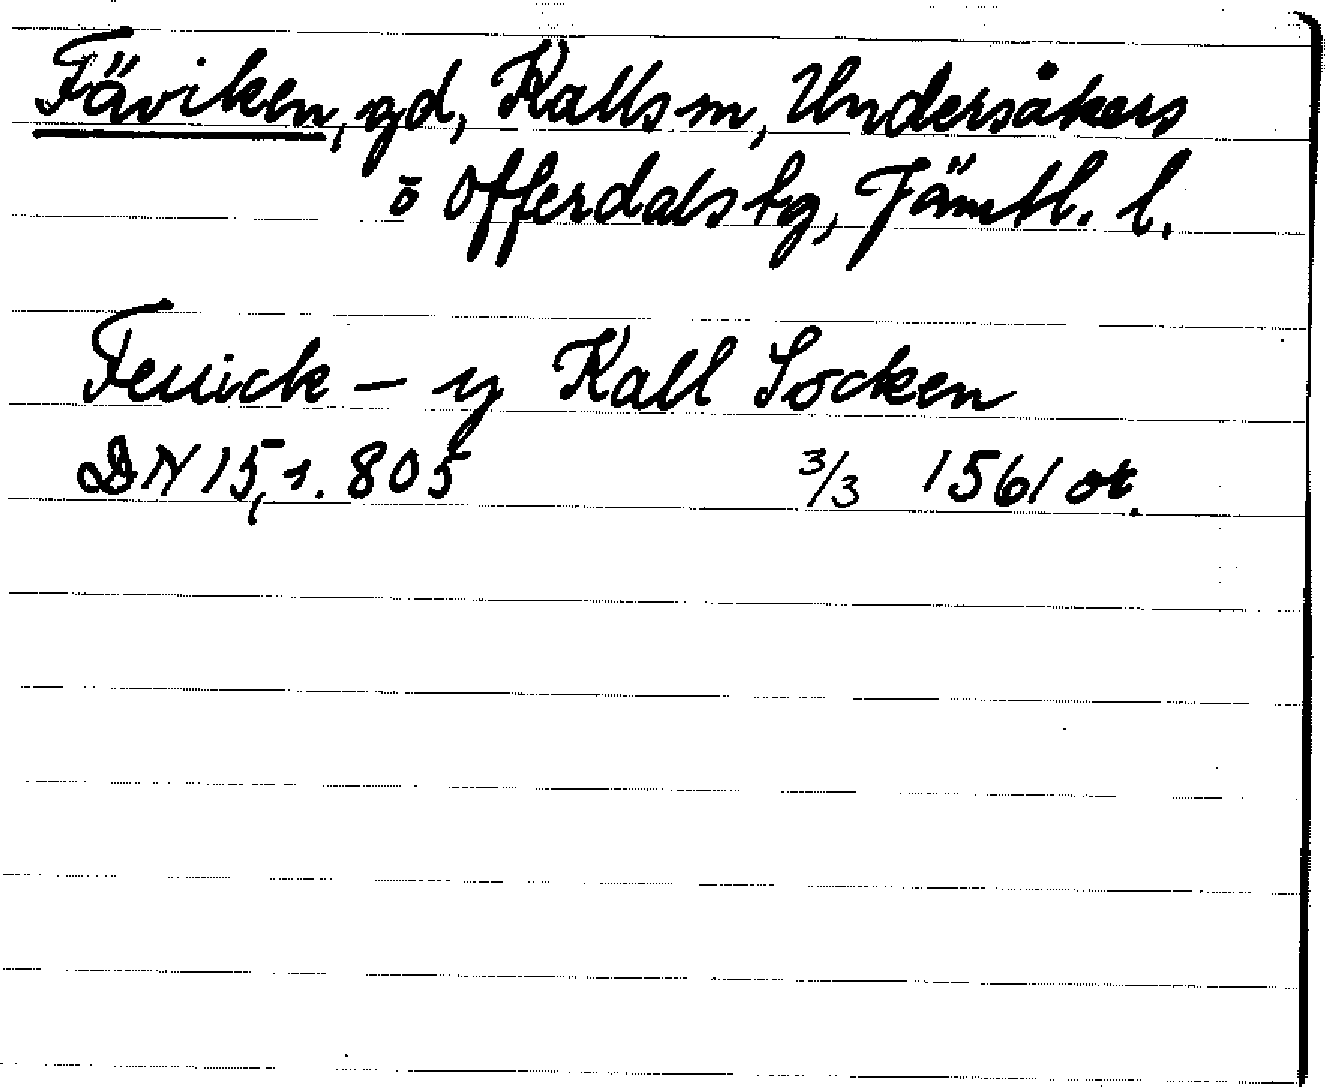 Fäviken, gd, Kalls sn, Undersåkers
o Offerdals tg, Jämtl. l.
Feuick – y Kall Socken
DN 15, s. 805 3/3 1561 or.